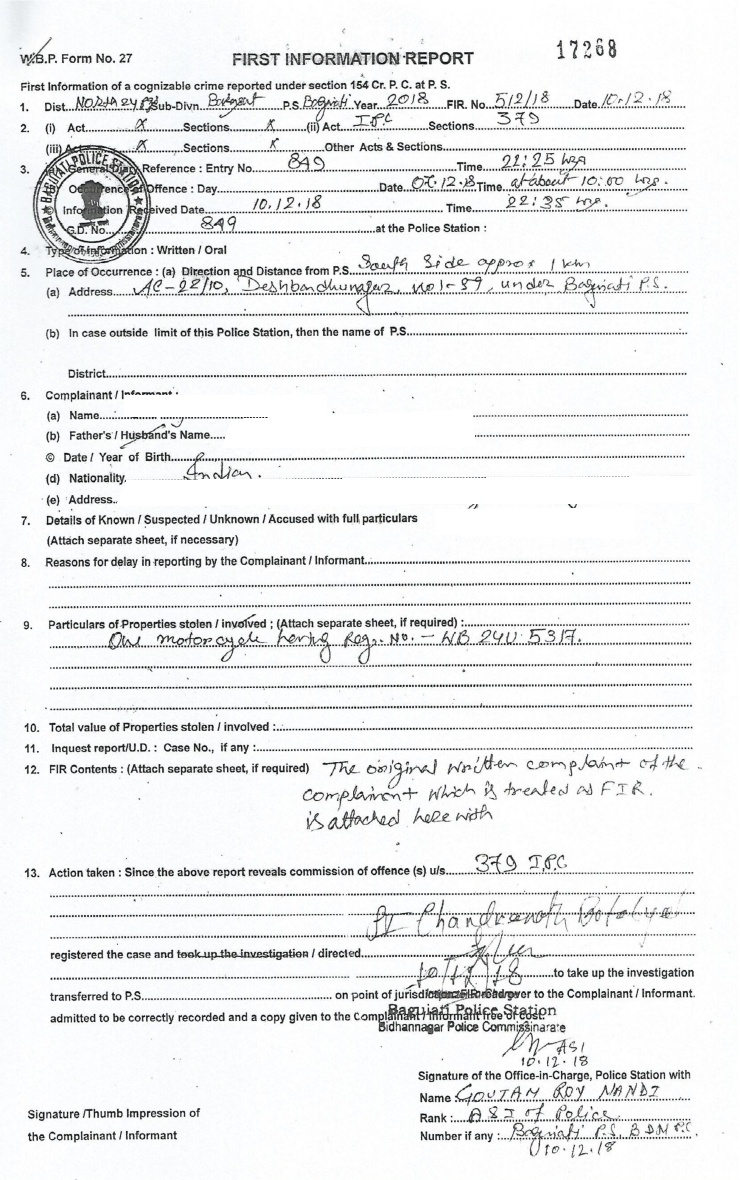 W.B.P. Form No. 27
FIRST INFORMATION REPORT
17268
First Information of a cognizable crime reported under section 154 Cr. P. C. at P. S.
1. Dist. North 24 Sub-Divn. P.S. Baguiati Year 2018 FIR. No. 512/18 Date 10.12.18
2. (i) Act X Sections X (ii) Act IPC Sections 379
(iii) Act X Sections X Other Acts & Sections
3. (a) General Diary Reference : Entry No. 849 Time 22:25 hrs
Occurrence of Offence : Day Date 07.12.18 Time at about 10:00 hrs.
Information Received Date 10.12.18 Time 22:35 hrs.
G.D. No. 849 at the Police Station :
BAGUIATI POLICE STATION
4. Type of Information : Written / Oral
5. Place of Occurrence : (a) Direction and Distance from P.S. South Side approx 1 km
(a) Address AC-22/10, Deshbandhunagar, no1-59, under Baguiati P.S.
(b) In case outside limit of this Police Station, then the name of P.S.
District
6. Complainant / Informant :
(a) Name
(b) Father's / Husband's Name
© Date / Year of Birth
(d) Nationality. Indian.
(e) Address..
7. Details of Known / Suspected / Unknown / Accused with full particulars
(Attach separate sheet, if necessary)
8. Reasons for delay in reporting by the Complainant / Informant
9. Particulars of Properties stolen / involved ; (Attach separate sheet, if required) :
One motorcycle having Reg. No. - WB 24U 5317.
10. Total value of Properties stolen / involved :
11. Inquest report/U.D. : Case No., if any :
12. FIR Contents : (Attach separate sheet, if required) The original written complaint of the
complainant which is treated as FIR.
is attached here with
13. Action taken : Since the above report reveals commission of offence (s) u/s. 379 IPC
Chandranath
registered the case and took up the investigation / directed
10/12/18 to take up the investigation
transferred to P.S. on point of jurisdiction FIR read over to the Complainant / Informant.
admitted to be correctly recorded and a copy given to the Complainant / Informant free of cost.
Baguiati Police Station
Bidhannagar Police Commissinarate
ASI
10.12.18
Signature of the Office-in-Charge, Police Station with
Name GOUTAM ROY NANDI
Rank : ASI of Police
Number if any : Baguiati P.S. BDN PC
10.12.18
Signature /Thumb Impression of
the Complainant / Informant